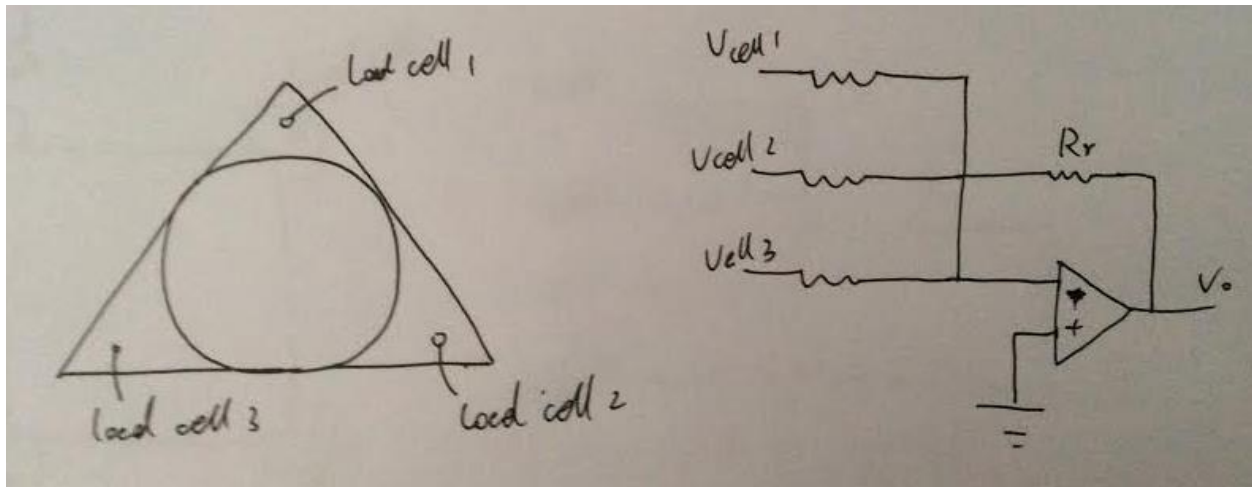 Load cell 1
load cell 3
Load cell 2
Vcell 1
Vcell 2
Vcell 3
Rr
+
Vo